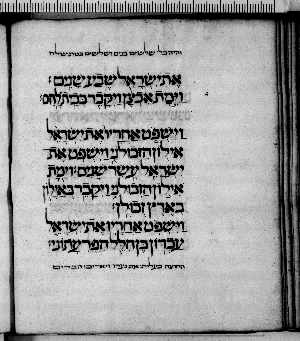 שלשים בנים ושלשים
את ישראל שבע שנים:
וימת אבצן ויקבר בבית לחם:
וישפט אחריו את ישראל
אילון הזבולני וישפט את
ישראל עשר שנים: וימת
אילון הזבולני ויקבר באילון
בארץ זבולן:
וישפט אחריו את ישראל
עבדון בן הלל הפרעתוני: